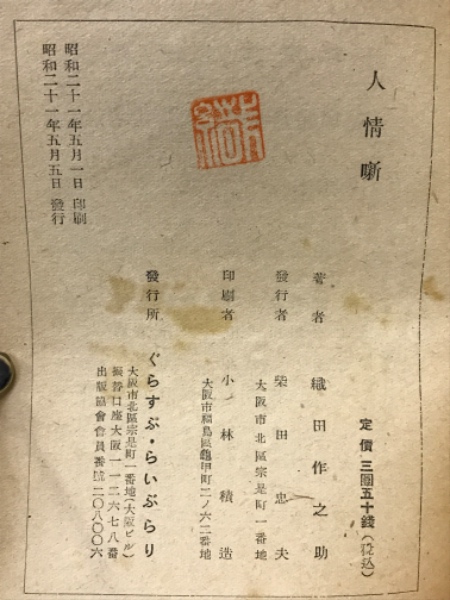 人情噺
定價 三圓五十錢(税込)
著者 織田作之助
發行者 柴田忠夫
大阪市北區宗是町一番地
印刷者 小林積造
大阪市福島區龜甲町二ノ六二番地
發行所 ぐらすぷ・らいぶらり
大阪市北區宗是町一番地(大阪ビル)
振替口座大阪一一二六七八番
出版協會會員番號二〇八〇〇六
昭和二十一年五月一日 印刷
昭和二十一年五月五日 發行